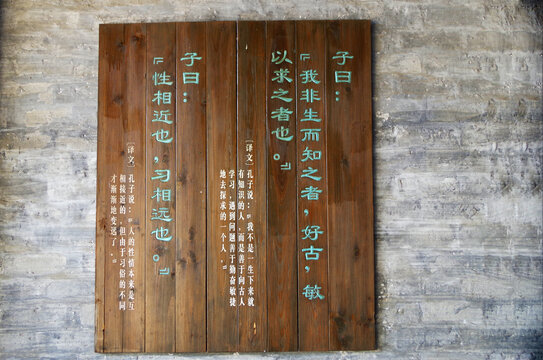 子曰：
『我非生而知之者，好古，敏
以求之者也。』
［译文］孔子说：“我不是一生下来就
有知识的人，而是善于向古人
学习，遇到问题善于勤奋敏捷
地去探求的一个人。”
子曰：
『性相近也，习相远也。』
［译文］孔子说：“人的性情本来是互
相接近的，但由于习俗的不同
才渐渐地变远了。”